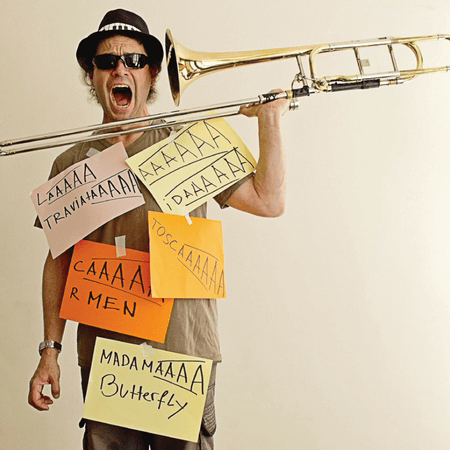 LAAAAA
TRAVIATAAAAA
AAAAAAA
IDAAAAAA
TOSCAAAAAAA
CAAAAA
RMEN
MADAMAAAA
Butterfly